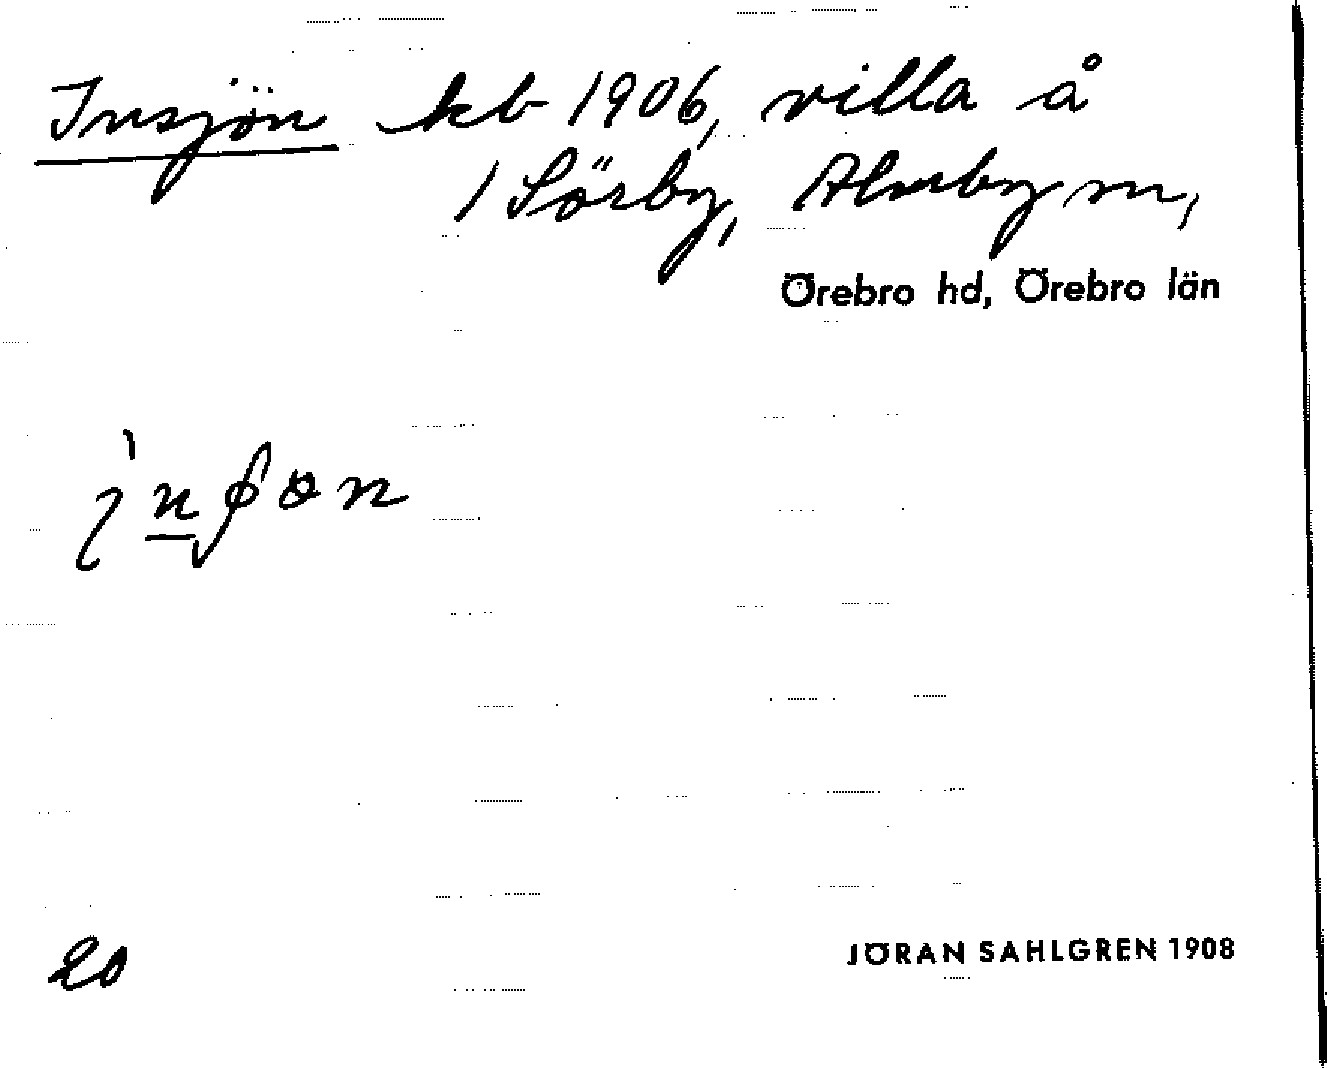 Insjön kb 1906, villa å
1 Sörby, Almby sn,
Örebro hd, Örebro län
JÖRAN SAHLGREN 1908